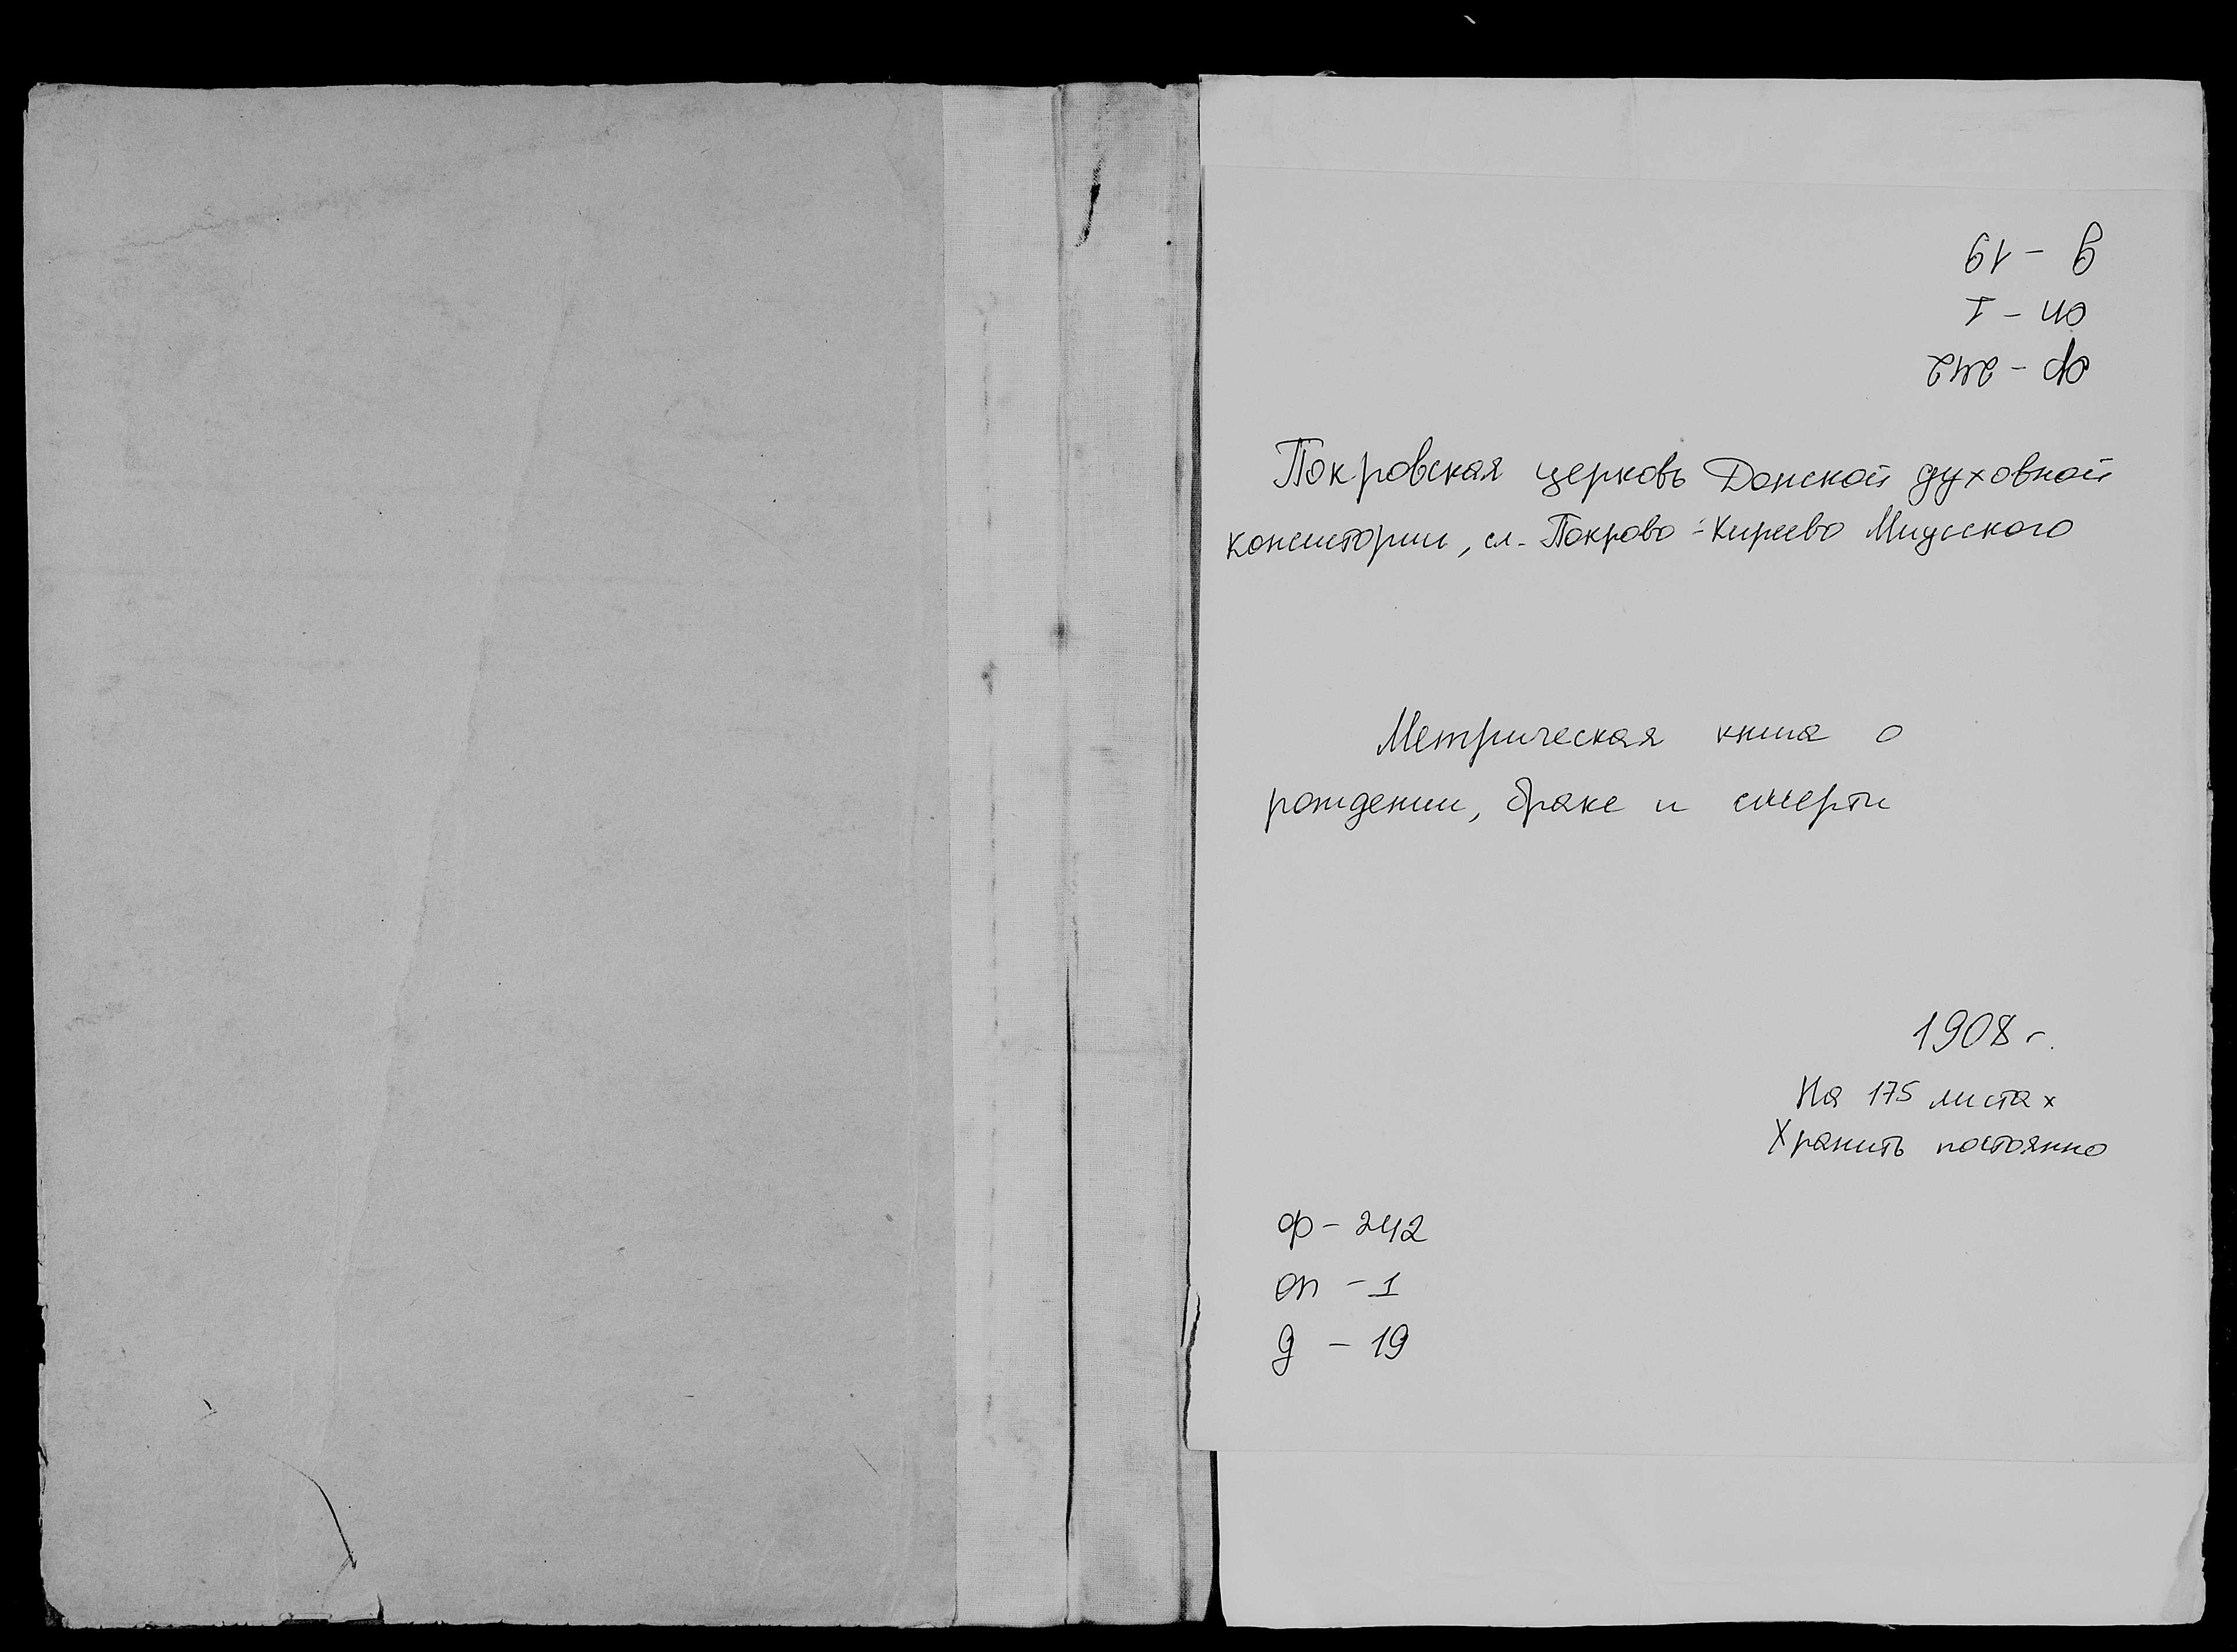 ф - 242
оп - 1
д - 19
Покровская церковь Донской духовной
консистории, сл. Покрово-Киреево Миусского
Метрическая книга о
рождении, браке и смерти
1908 г.
На 175 листах
Хранить постоянно
ф - 242
оп - 1
д - 19